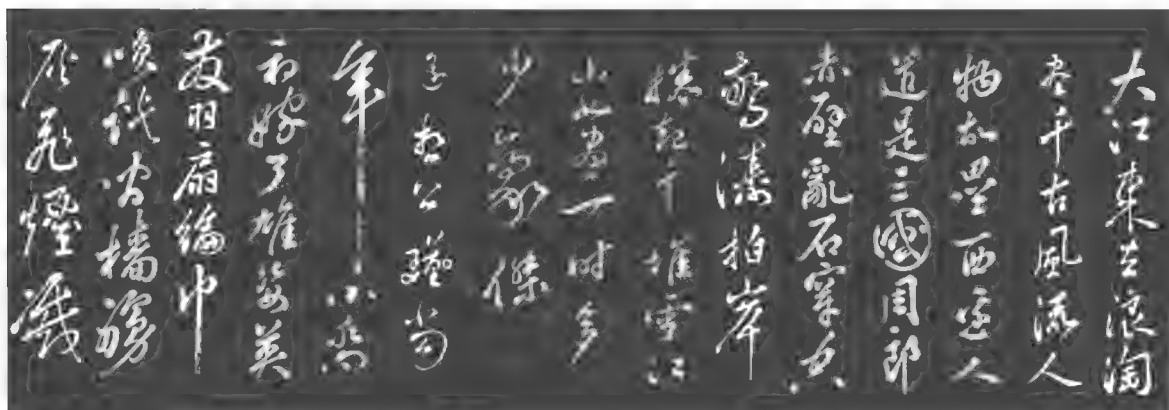 大江東去浪淘
盡千古風流人
物故壘西邊人
道是三國周郎
赤壁亂石穿空
驚濤拍岸
捲起千堆雪江
山如畫一时多
少豪傑
遥想公瑾當
年小喬
初嫁了雄姿英
發羽扇綸巾
笑談间檣櫓
灰飛煙滅